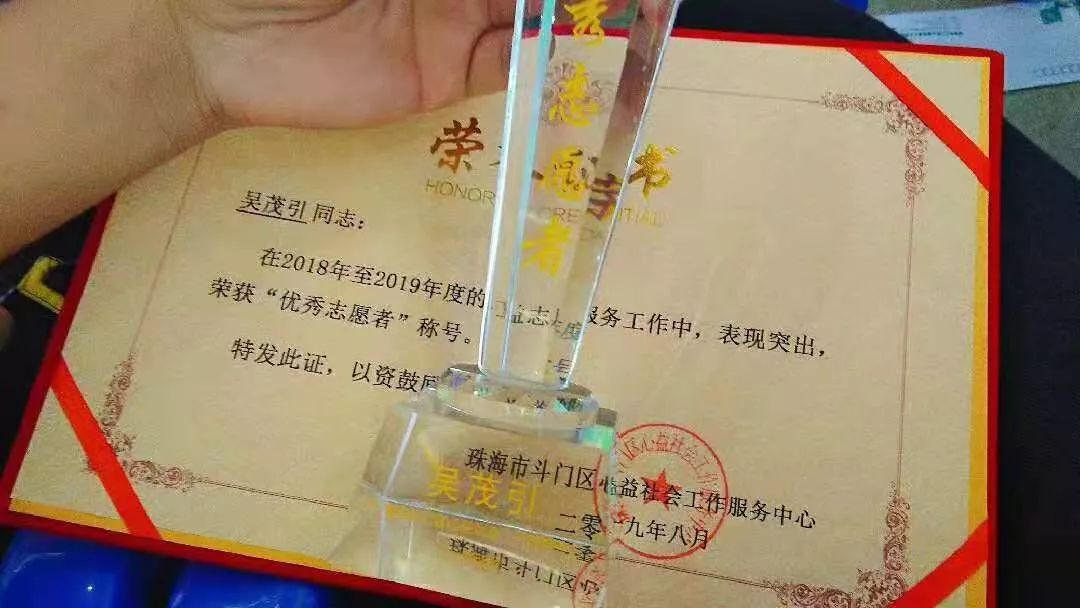 秀志愿者
荣 书
HONOR CREDENTIAL
吴茂引同志：
在2018年至2019年度的 益志 服务工作中，表现突出，
荣获“优秀志愿者”称号。
特发此证，以资鼓
珠海市斗门区 益社会工作服务中心
二零 九年八月
心益社会工
吴茂引
珠海市斗门区